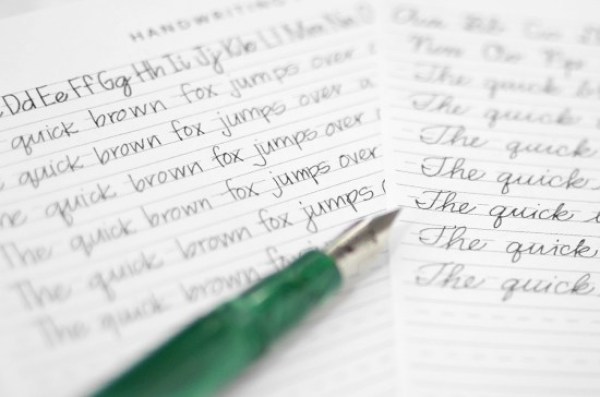 HANDWRITING
Dd Ee Ff Gg Hh Ii Jj Kk Ll Mm Nn O
quick brown fox jumps over
quick brown fox jumps over a
quick brown fox jumps over
The quick brown fox jumps over
The quick brown fox jumps
The quick brown fox
The quick
The quick
The quick
The quick
The quick
The quick
The quick